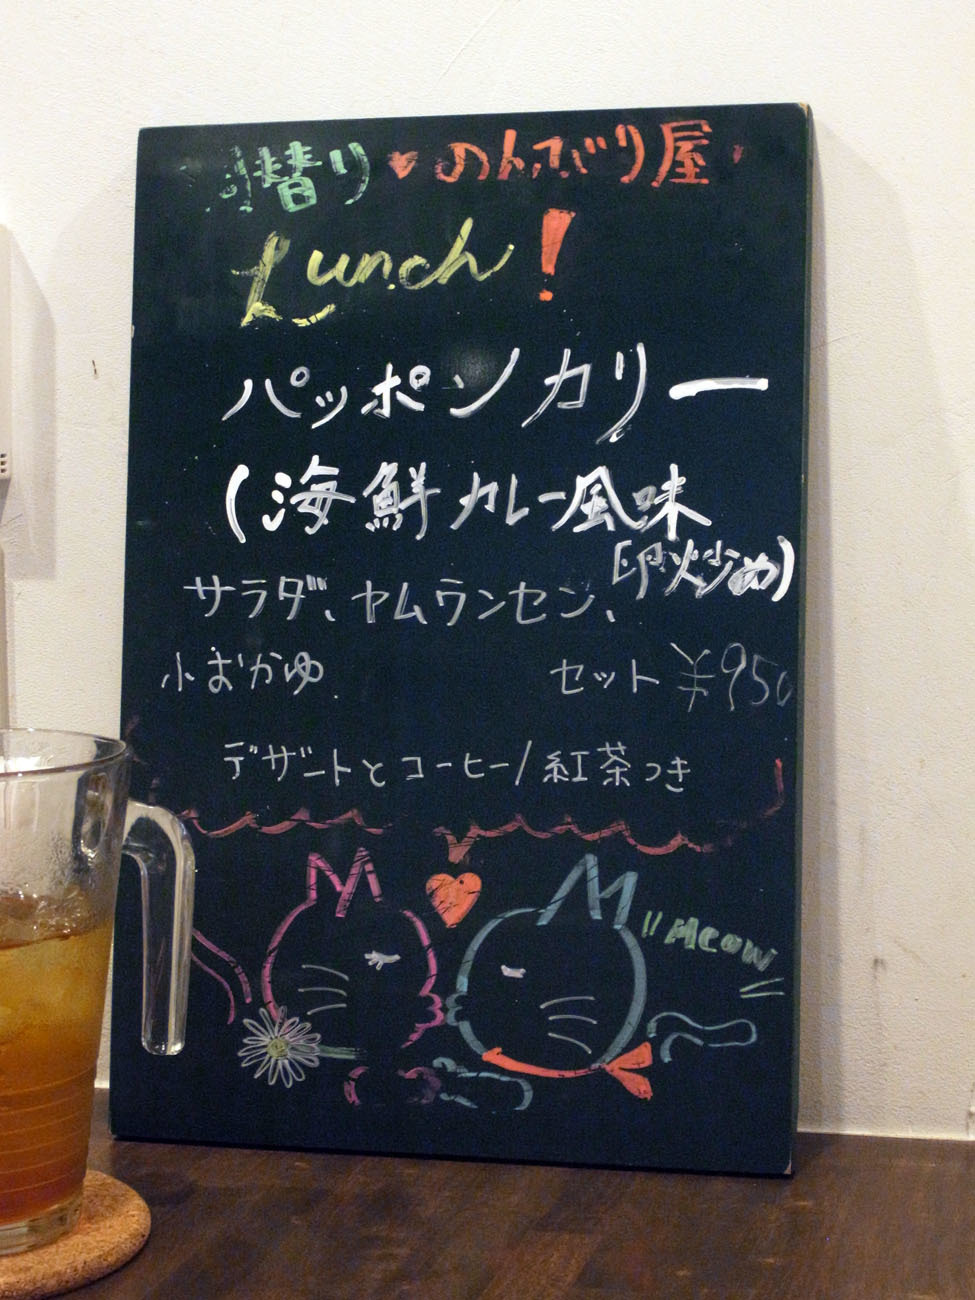 日替り♥のんびり屋
Lunch!
パッポンカリー
(海鮮カレー風味
卵炒め)
サラダ、ヤムウンセン、
小おかゆ セット ¥950
デザートとコーヒー/紅茶つき
Meow